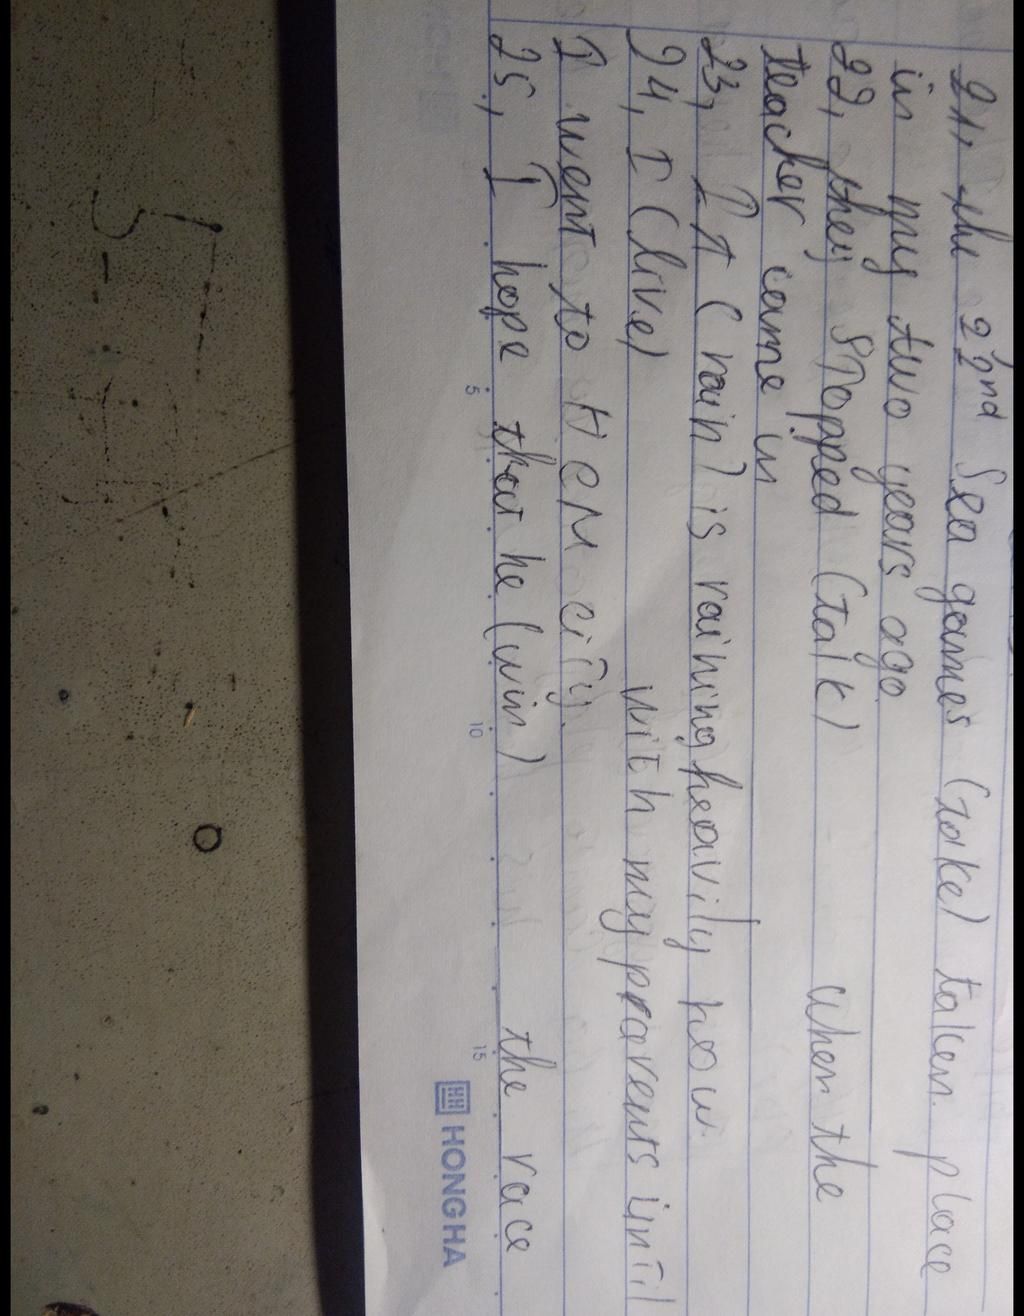 21, the 22nd Sea games (take) taken place
in my two years ago
22, they stopped (talk) when the
teacher came in
23, It (rain) is raining heavily now.
24, I (live) with my parents until
I went to HCM city.
25, I hope that he (win) the race
5 10 15
HONG HA